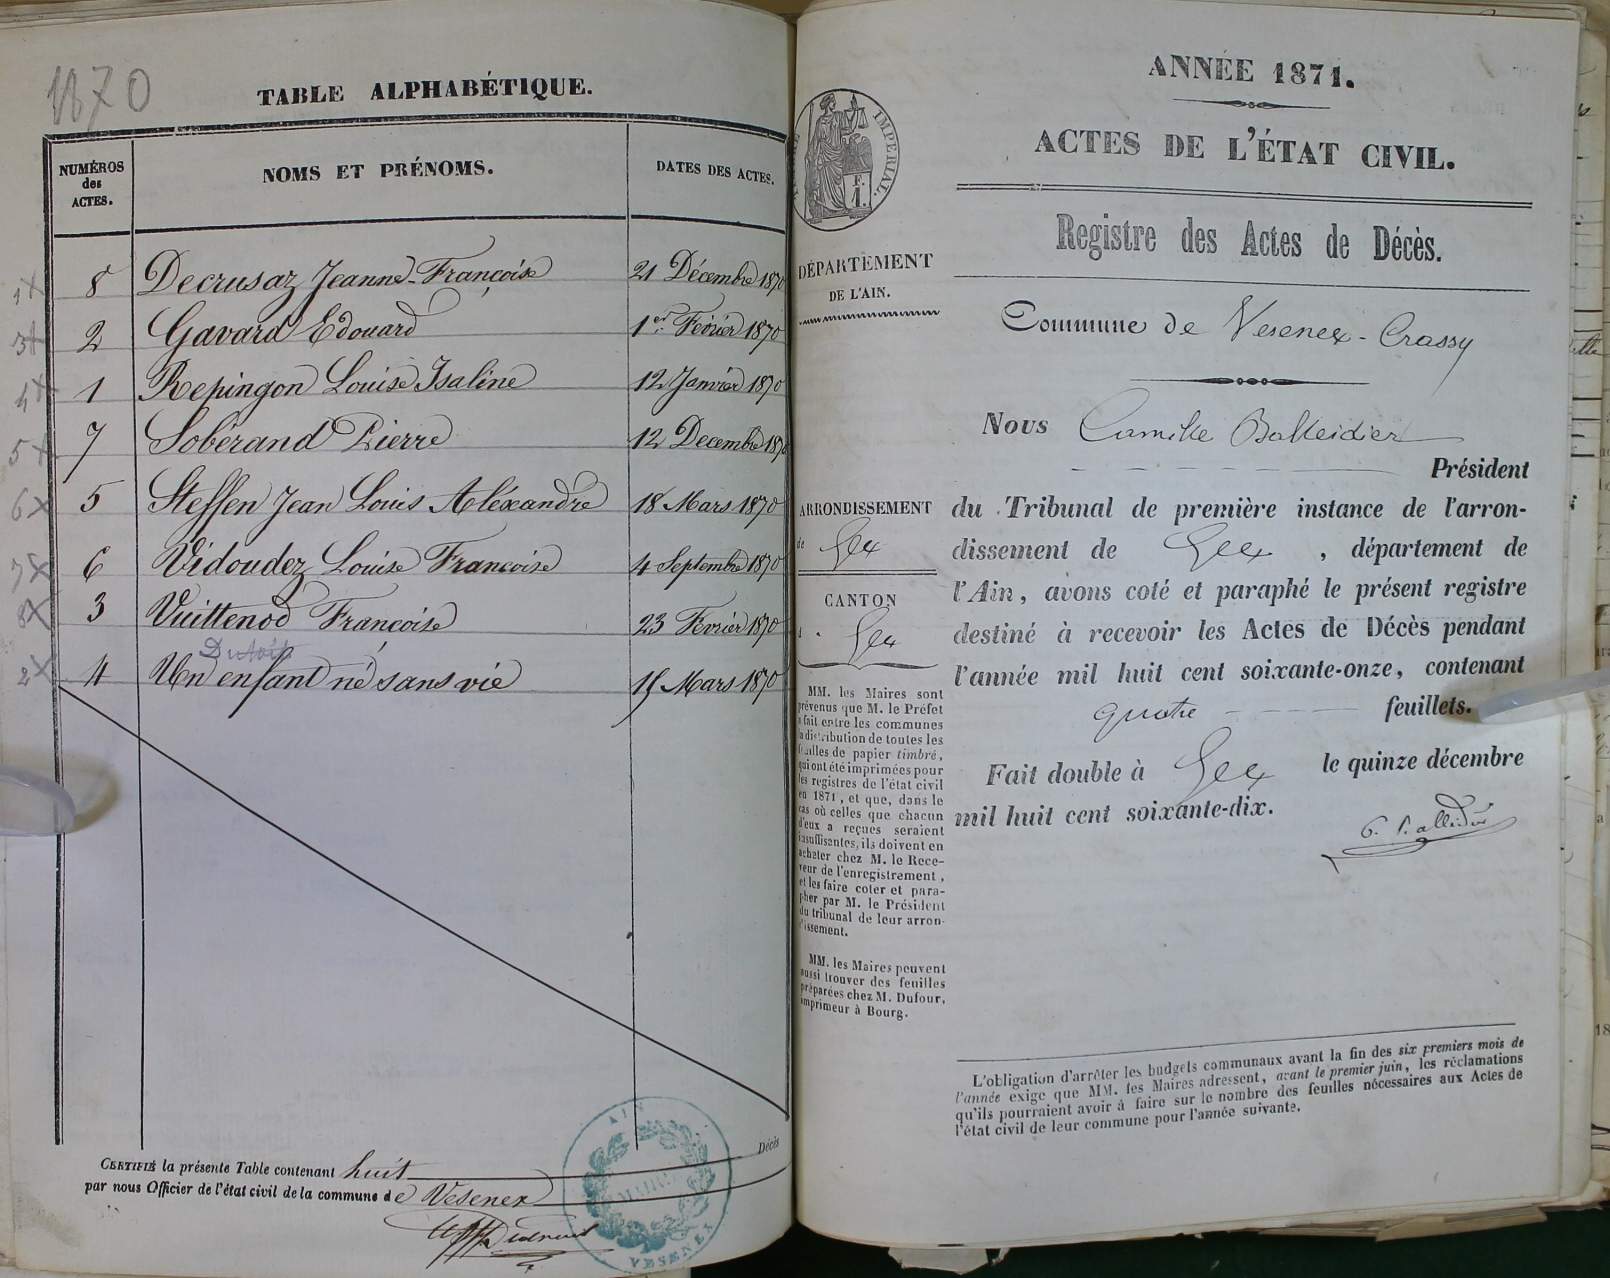 1870
TABLE ALPHABÉTIQUE.
NUMÉROS des ACTES.
NOMS ET PRÉNOMS.
DATES DES ACTES.
1x 8 Decrusaz Jeanne-Françoise 21 Décembre 1870
3x 2 Gavard Edouard 1er Février 1870
4x 1 Repingon Louise Isaline 12 Janvier 1870
5x 7 Sobérand Pierre 12 Decembre 1870
6x 5 Steffen Jean Louis Aléxandre 18 Mars 1870
7x 6 Vidoudez Louise Francoise 4 Septembre 1870
8x 3 Vuittenod Françoise 23 Fevrier 1870
2x 4 Un enfant né sans vie 15 Mars 1870
Décès
CERTIFIÉ la présente Table contenant huit
par nous Officier de l'état civil de la commune de Vesenex
AIN
MAIRIE
VESENEX
ANNÉE 1871.
ACTES DE L'ÉTAT CIVIL.
Registre des Actes de Décès.
IMPERIAL.
F.
1.
DÉPARTEMENT
DE L'AIN.
Commune de Vesenex-Crassy
Nous Camille Balleidier
Président
du Tribunal de première instance de l'arron-
dissement de Gex, département de
l'Ain, avons coté et paraphé le présent registre
destiné à recevoir les Actes de Décès pendant
l'année mil huit cent soixante-onze, contenant
quatre feuillets.
Fait double à Gex le quinze décembre
mil huit cent soixante-dix.
ARRONDISSEMENT
de Gex
CANTON
Gex
MM. les Maires sont
prévenus que M. le Préfet
a fait entre les communes
la distribution de toutes les
feuilles de papier timbré,
qui ont été imprimées pour
les registres de l'état civil
en 1871, et que, dans le
cas où celles que chacun
d'eux a reçues seraient
insuffisantes, ils doivent en
acheter chez M. le Rece-
veur de l'enregistrement,
et les faire coter et para-
pher par M. le Président
du tribunal de leur arron-
dissement.
MM. les Maires peuvent
aussi trouver des feuilles
préparées chez M. Dufour,
imprimeur à Bourg.
L'obligation d'arrêter les budgets communaux avant la fin des six premiers mois de
l'année exige que MM. les Maires adressent, avant le premier juin, les réclamations
qu'ils pourraient avoir à faire sur le nombre des feuilles nécessaires aux Actes de
l'état civil de leur commune pour l'année suivante.